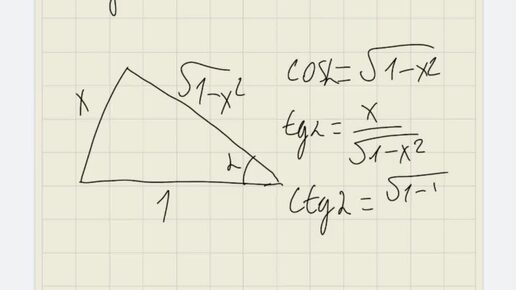 x
√1-x²
α
1
cosα = √1-x²
tgα = x/√1-x²
ctgα = √1-